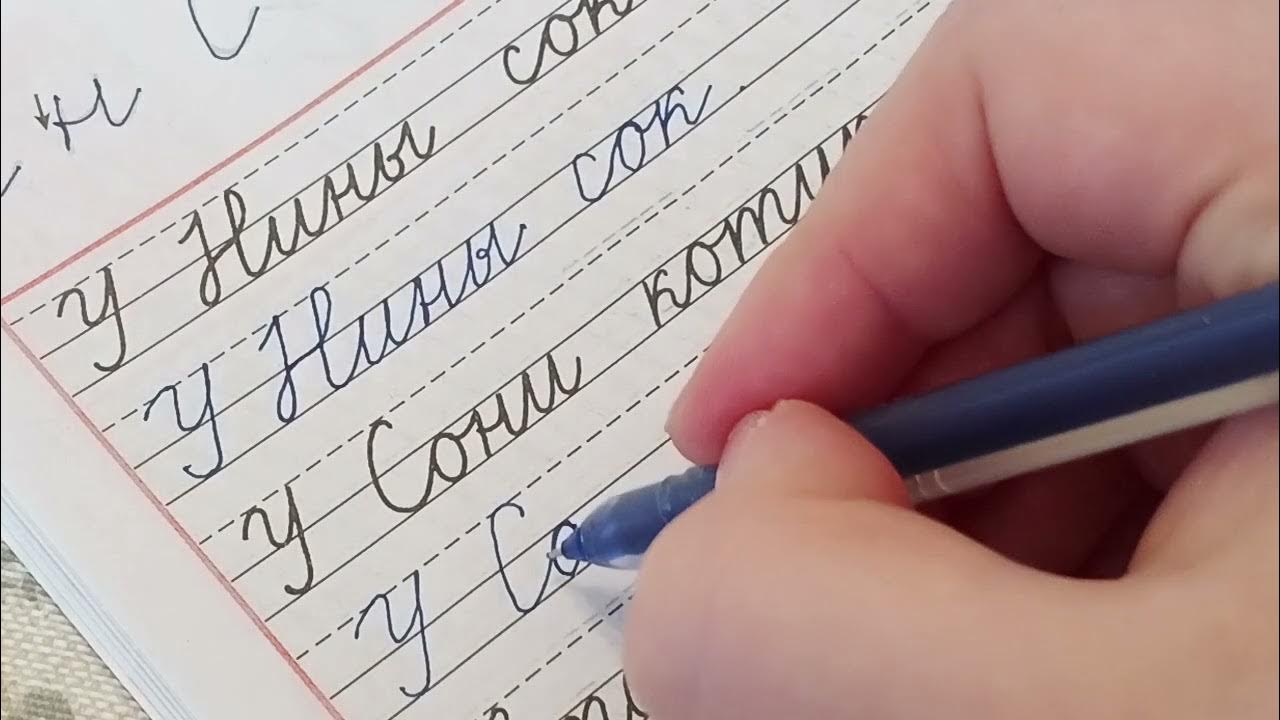 н
у Нины сок
у Нины сок.
у Сони котик
у Со